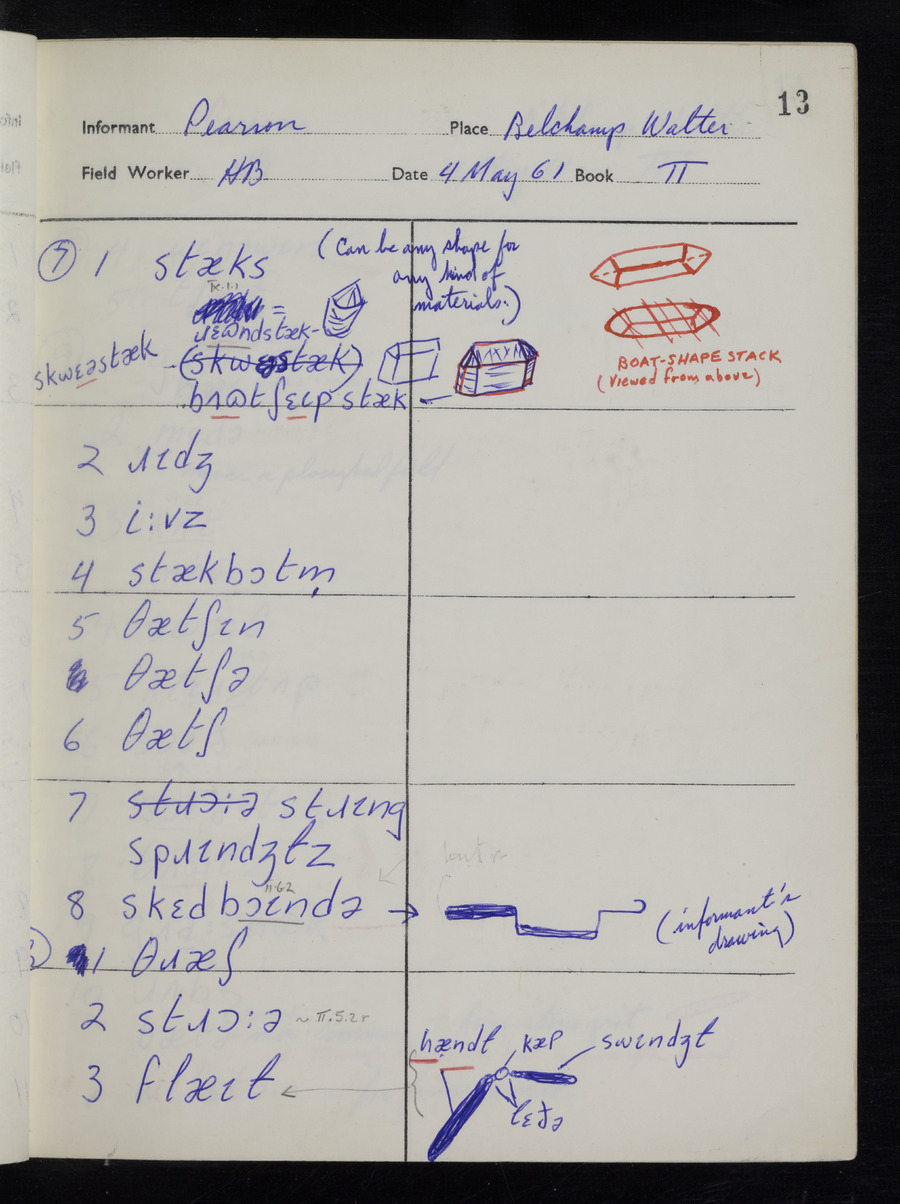 13
Informant Pearson Place Belchamp Walter
Field Worker HB Date 4 May 61 Book II
7 1 stæks (Can be any shape for
any kind of
materials.)
ɹɛɷndstæk-
skwɛəstæk (skwɛəstæk)
bʌɷtʃɛɩpstæk
BOAT-SHAPE STACK
(Viewed from above)
2 ɹɩdʒ
3 i:vz
4 stækbɔtm̩
5 θætʃɩn
θætʃə
6 θætʃ
7 stɹɔ:ə stɹɩng
spɹɩndʒɫz
8 skɛdbɔɩndə → (informant's
drawing)
1 θɹæʃ
2 stɹɔ:ə ~ II.5.2r
3 flæɩɫ
hændɫ kæp swɩndʒɫ